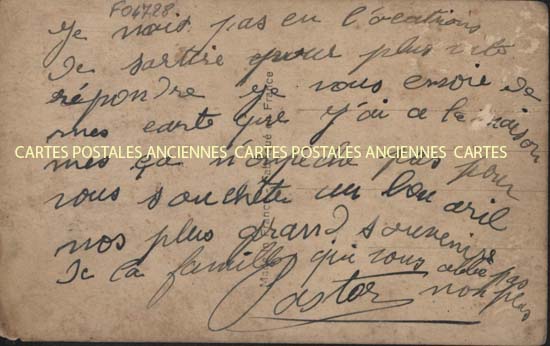 F04728
Je nais pas eu l'ocations
de sortire pour plus vite
répondre je vous envoie de
mes carte que j'ai a la maison
CARTES POSTALES ANCIENNES CARTES POSTALES ANCIENNES CARTES
mes ça n'empeche pas pour
vous souheté un bon avril
nos plus grand souvenirs
de la famille qui vous oublie pas
Castor non plus